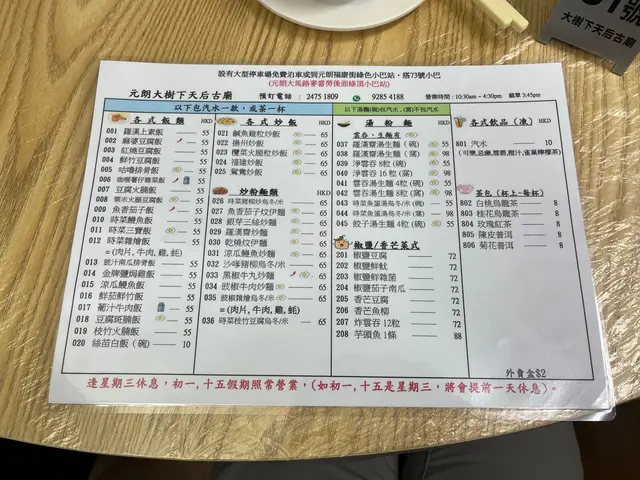 設有大型停車場免費泊車或到元朗福康街綠色小巴站，搭73號小巴
(元朗大馬路麥當勞後面綠頂小巴站)
元朗大樹下天后古廟 預訂電話： 2475 1809 9285 4188 營業時間：10:30am – 4:30pm 截單 3:45pm
以下包汽水一款，或茶一杯
各式飯類 HKD
001 羅漢上素飯 55
002 麻婆豆腐飯 55
003 紅燒豆腐飯 55
004 鮮竹豆腐飯 55
005 咕嚕排骨飯 55
006 咖喱薯仔雞菜飯 55
007 豆腐火腩飯 55
008 粟米火腿豆腐飯 55
009 魚香茄子飯 55
010 時菜鰻魚飯 55
011 時菜三寶飯 55
012 時菜雜燴飯 55
= (肉片, 牛肉, 雞, 魷)
013 豉汁南瓜排骨飯 55
014 金牌鹽焗雞飯 55
015 涼瓜鰻魚飯 55
016 鮮茄鮮竹飯 55
017 葡汁牛肉飯 55
018 豆腐斑腩飯 55
019 枝竹火腩飯 55
020 絲苗白飯 (碗) 10
各式炒飯 HKD
021 鹹魚雞粒炒飯 55
022 揚州炒飯 55
023 欖菜火腿粒炒飯 55
024 福建炒飯 65
025 鴛鴦炒飯 65
炒粉麵類 HKD
026 時菜豬柳炒烏冬/米 65
027 魚香茄子炆伊麵 65
028 銀芽三絲炒麵 65
029 羅漢齋炒麵 65
030 乾燒炆伊麵 65
031 涼瓜鰻魚炒麵 65
032 沙嗲豬柳烏冬/米 65
033 黑椒牛丸炒麵 65
034 豉椒牛肉炒麵 65
035 豉椒雜燴烏冬/米 65
= (肉片, 牛肉, 雞, 魷)
036 時菜枝竹豆腐烏冬/米 65
以下湯麵(碗)包汽水, (窩)不包汽水
湯粉麵 HKD
雲吞, 生麵有
037 羅漢齋湯生麵 (碗) 55
038 羅漢齋湯生麵 (窩) 98
039 淨雲吞 8粒 (碗) 55
040 淨雲吞 16粒 (窩) 98
041 雲吞湯生麵 4粒 (碗) 55
042 雲吞湯生麵 8粒 (窩) 98
043 時菜魚滷湯烏冬/米 (碗) 55
044 時菜魚滷湯烏冬/米 (窩) 98
045 餃子湯生麵 (碗) 55
椒鹽/香芒菜式
201 椒鹽豆腐 72
202 椒鹽鮮魷 72
203 椒鹽鮮雜菌 72
204 椒鹽茄子南瓜 72
205 香芒豆腐 72
206 香芒魚柳 72
207 炸雲吞 12粒 72
208 芋頭魚 1條 88
各式飲品 (凍) HKD
801 汽水 10
茶包 (杯上-每杯)
802 白桃烏龍茶 8
803 桂花烏龍茶 8
804 玫瑰紅茶 8
805 陳皮普洱 8
806 菊花普洱 8
外賣盒$2
逢星期三休息，初一, 十五假期照常營業，(如初一, 十五是星期三，將會提前一天休息)。
號
大樹下天后古廟